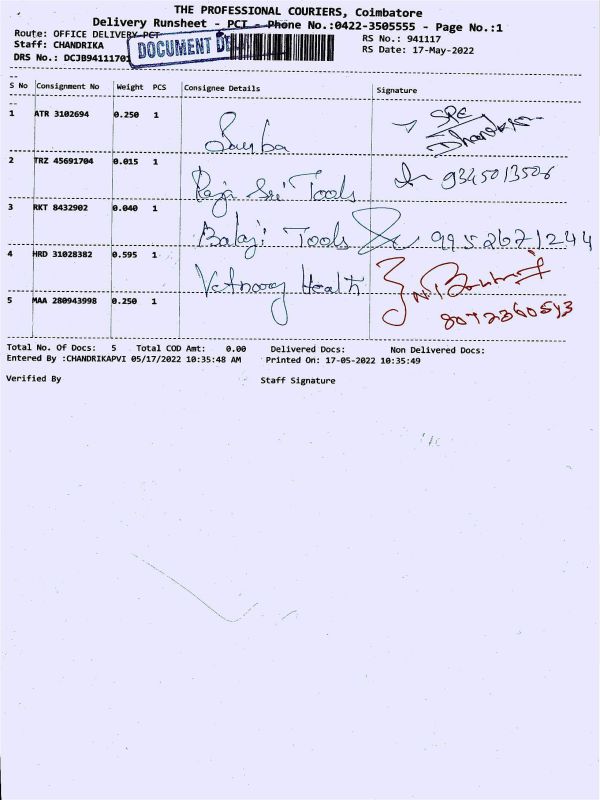 THE PROFESSIONAL COURIERS, Coimbatore
Delivery Runsheet - PCT - Phone No.:0422-3505555 - Page No.:1
Route: OFFICE DELIVERY-PCT
RS No.: 941117
Staff: CHANDRIKA
DOCUMENT
RS Date: 17-May-2022
DRS No.: DCJB94111701
S No Consignment No Weight PCS Consignee Details Signature
1 ATR 3102694 0.250 1
2 TRZ 45691704 0.015 1
Raja Sri Tools 9345013506
3 RKT 8432902 0.040 1
Balaji Tools 9952671244
4 HRD 31028382 0.595 1
Health
5 MAA 280943998 0.250 1
8072360543
Total No. Of Docs: 5 Total COD Amt: 0.00 Delivered Docs: Non Delivered Docs:
Entered By :CHANDRIKAPVI 05/17/2022 10:35:48 AM Printed On: 17-05-2022 10:35:49
Verified By Staff Signature